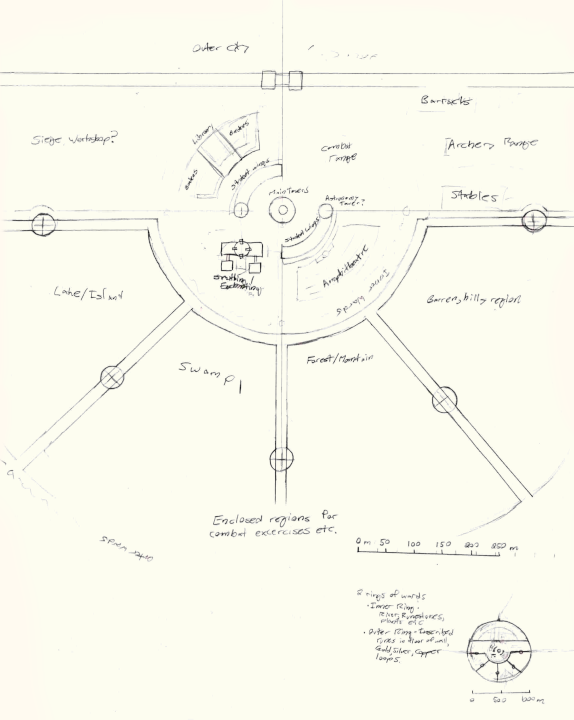 Outer City
Barracks
Siege Workshop?
Library
Combat
Range
[Archery Range
Student Wings
Main Towers
Astronomy
Tower?
Stables
Student Wings
Smithing/
Enchanting
Amphitheatre
Inner Wards
Lake/Island
Barren, hilly region
Swamp
Forest/Mountain
Outer Wards
Enclosed regions for
combat excercises etc.
0 m 50 100 150 200 250 m
2 rings of wards
• Inner Ring -
River, Runestones,
plants etc
• Outer Ring - Inscribed
runes in floor of wall,
Gold, Silver, Copper
loops.
0 500 1000 m